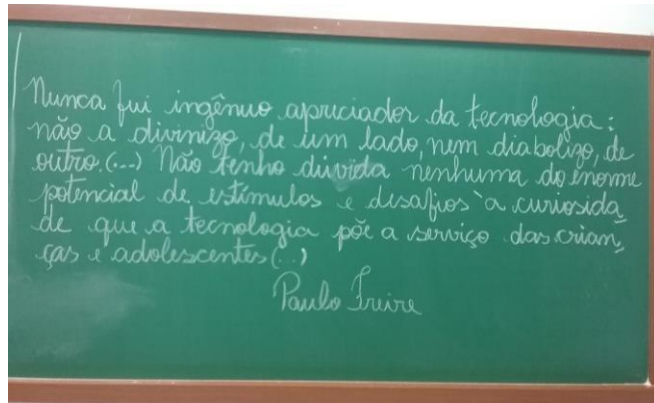 Nunca fui ingênuo apreciador da tecnologia:
não a divinizo, de um lado, nem diabolizo, de
outro. (...) Não tenho dúvida nenhuma do enorme
potencial de estímulos e desafios à curiosida
de que a tecnologia põe a serviço das crian
ças e adolescentes (...)
Paulo Freire